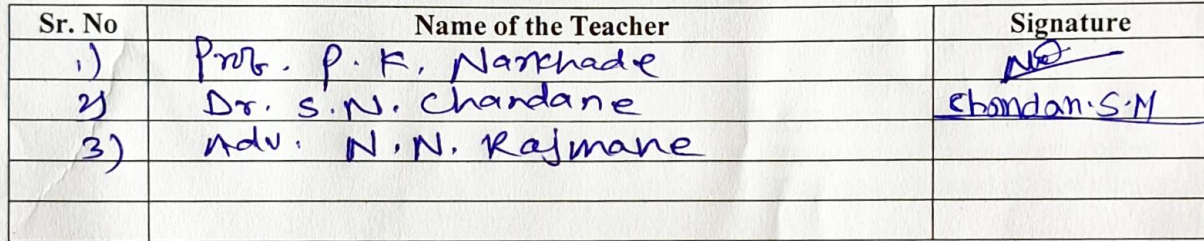 Sr. No Name of the Teacher Signature
1) Prof. P. K. Narkhade
2) Dr. S. N. Chandane Chandan.S.M
3) Adv. N. N. Rajmane